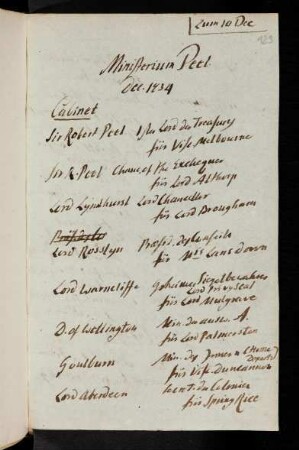 zum 10 Dec
Ministerium Peel
Dec. 1834
Cabinet
Sir Robert Peel 1ster Lord der Treasury
für Visc. Melbourne
Sir R. Peel Chanc. of the Exchequer
für Lord Althorp
Lord Lyndhurst Lord Chancellor
für Lord Brougham
Lord Rosslyn Präsid. des
für Mqs Lansdown
Lord Warncliffe Geheimer Siegelbewahrer
Lord privy seal
für Lord Mulgrave
D. of Wellington Min. der ausw. A.
für Lord Palmerston
Goulburn Min. des Innern (Home
Departt)
für Visc. Duncannon
Lord Aberdeen der Colonien
für Spring Rice